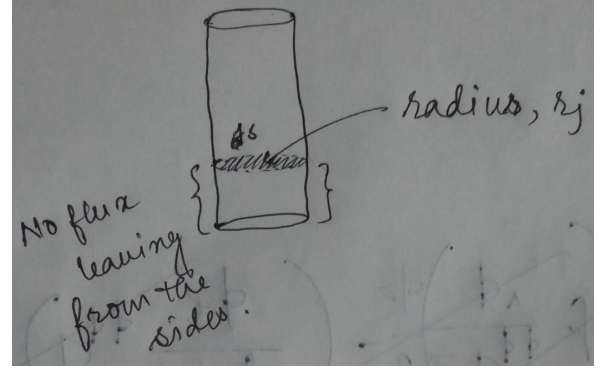 ds
radius, rj
No flux
leaving
from the
sides.